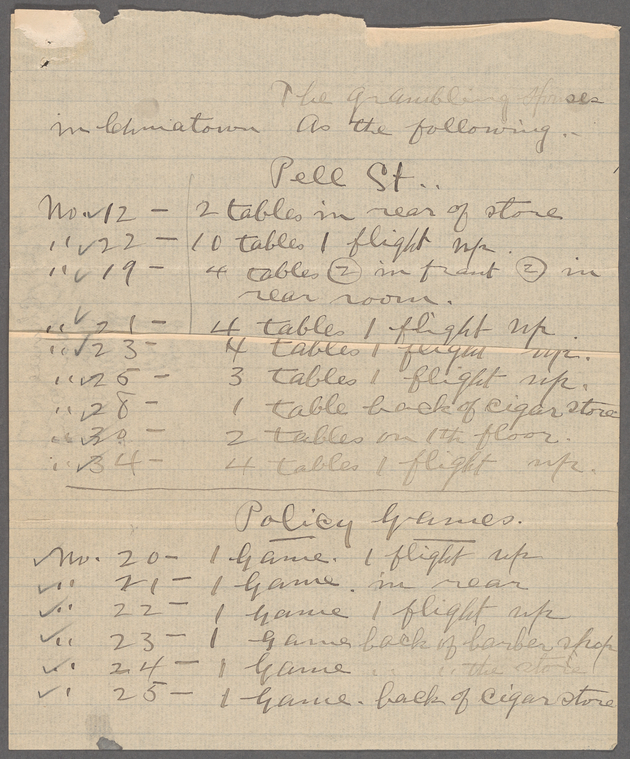 The Grambling Houses
in Chinatown As the following..
Pell St..
No. ✓12 - 2 tables in rear of store
" ✓22 - 10 tables 1 flight up.
" ✓19 - 4 tables (2) in front (2) in
rear room.
" ✓21 - 4 tables 1 flight up
" ✓23 - 4 tables 1 flight up.
" ✓25 - 3 tables 1 flight up.
" ✓28 - 1 table back of cigar store
" ✓30 - 2 tables on 1th floor.
" ✓34 - 4 tables 1 flight up.
Policy Games.
✓No. 20 - 1 Game. 1 flight up
✓" 21 - 1 Game. in rear
✓" 22 - 1 Game 1 flight up
✓" 23 - 1 Game back of barber shop
✓" 24 - 1 Game " " the store
✓" 25 - 1 Game. back of cigar store